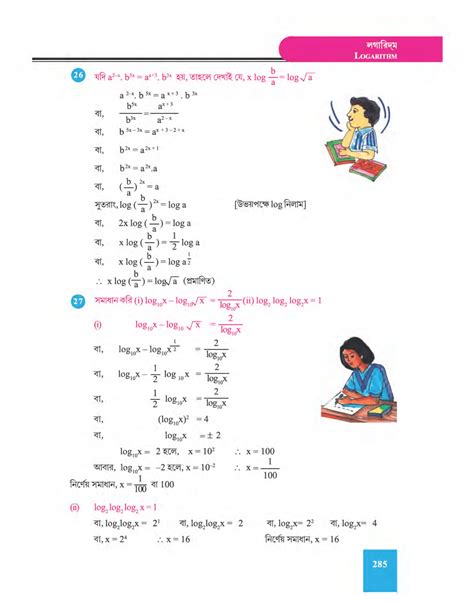 লগারিদ্‌ম
LOGARITHM
26 যদি a²⁻ˣ. b⁵ˣ = aˣ⁺³. b³ˣ হয়, তাহলে দেখাই যে, x log b/a = log √a
a ²⁻ˣ. b ⁵ˣ = a ˣ⁺³ . b ³ˣ
বা, b⁵ˣ/b³ˣ = aˣ⁺³/a²⁻ˣ
বা, b ⁵ˣ⁻³ˣ = aˣ⁺³⁻²⁺ˣ
বা, b²ˣ = a²ˣ⁺¹
বা, b²ˣ = a²ˣ.a
বা, (b/a)²ˣ = a
সুতরাং, log (b/a)²ˣ = log a [উভয়পক্ষে log নিলাম]
বা, 2x log (b/a) = log a
বা, x log (b/a) = 1/2 log a
বা, x log (b/a) = log a^(1/2)
∴ x log (b/a) = log√a (প্রমাণিত)
27 সমাধান করি (i) log₁₀x – log₁₀√x = 2/log₁₀x (ii) log₂ log₂ log₂ x = 1
(i) log₁₀x – log₁₀ √x = 2/log₁₀x
বা, log₁₀x – log₁₀x^(1/2) = 2/log₁₀x
বা, log₁₀x – 1/2 log ₁₀ x = 2/log₁₀x
বা, 1/2 log₁₀x = 2/log₁₀x
বা, (log₁₀x)² = 4
বা, log₁₀x = ± 2
log₁₀x = 2 হলে, x = 10² ∴ x = 100
আবার, log₁₀x = –2 হলে, x = 10⁻² ∴ x = 1/100
নির্ণেয় সমাধান, x = 1/100 বা 100
(ii) log₂log₂log₂ x = 1
বা, log₂log₂x = 2¹ বা, log₂log₂x = 2 বা, log₂x= 2² বা, log₂x= 4
বা, x = 2⁴ ∴ x = 16 নির্ণেয় সমাধান, x = 16
285